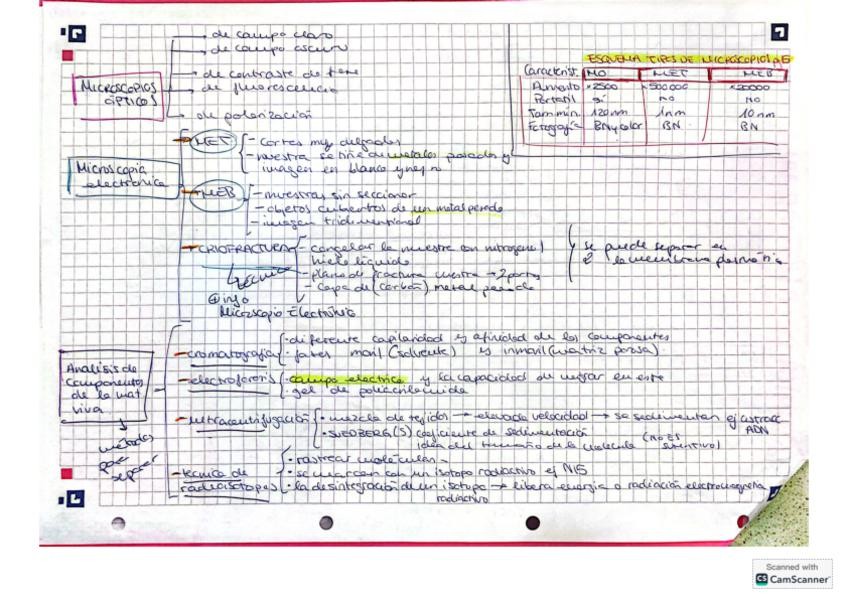 de campo claro
de campo oscuro
MICROSCOPIOS ÓPTICOS
de contraste de fase
de fluorescencia
de polarización
ESQUEMA TIPOS DE MICROSCOPIOS
Característ. MO MET MEB
Aumento ×2500 ×500000 ×20000
Portatil sí NO NO
Tam.min. 120nm 1nm 10nm
Fotografía BN y color BN BN
Microscopia electrónica
MET
- cortes muy delgados
- muestra se tiñe de metales pesados y
imagen en blanco y negro
MEB
- muestras sin seccionar
- objetos cubiertos de un metal pesado
- imagen tridimensional
CRIOFRACTURA
- congelar la muestra con nitrogeno
líquido
- plano de fractura muestra → 2 partes
- capa de (carbón) metal pesado
se puede separar en
la membrana plasmática
técnica
+ info
Microscopio Electrónico
Análisis de
componentes
de la mat
viva
métodos
para
separar
- cromatografía
· diferente capilaridad y afinidad de los componentes
· fases movil (solvente) y inmovil (matriz porosa).
- electroforesis
· campo electrico y la capacidad de migrar en este
· gel de poliacrilamida
- ultracentrifugación
· mezcla de tejidos → elevada velocidad → se sedimentan ej extracc
ADN
· SVEDBERG (S) coeficiente de sedimentación
idea del tamaño de la molecula (NO ES
- tecnica de
radioisotopos
· rastrear moléculas
· se marcan con un isotopo radiactivo ej N15
· la desintegración de un isotopo → libera energia o radiación electromagnetica
radiactivo
Scanned with
CS CamScanner